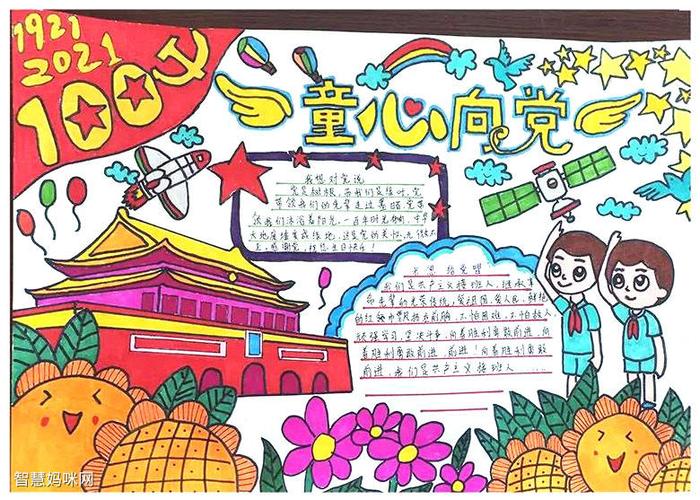 1921
2021
100
童心向党
我想对党说
党是树根，而我们是绿叶，党
带领我们的先辈走过黑暗，党带
领我们沐浴着阳光，一百年时光匆匆，中华
大地废墟变成绿地，这是党的关怀，
感谢党，祝您生日快乐！
我们是共产主义接班人，继承革
命先辈的光荣传统，爱祖国，爱人民，鲜艳
的红领巾飘扬在前胸，不怕困难，不怕敌人，
顽强学习，坚决斗争，向着胜利勇敢前进，向
着胜利勇敢前进，前进！向着胜利勇敢
前进，我们是共产主义接班人……
智慧妈咪网